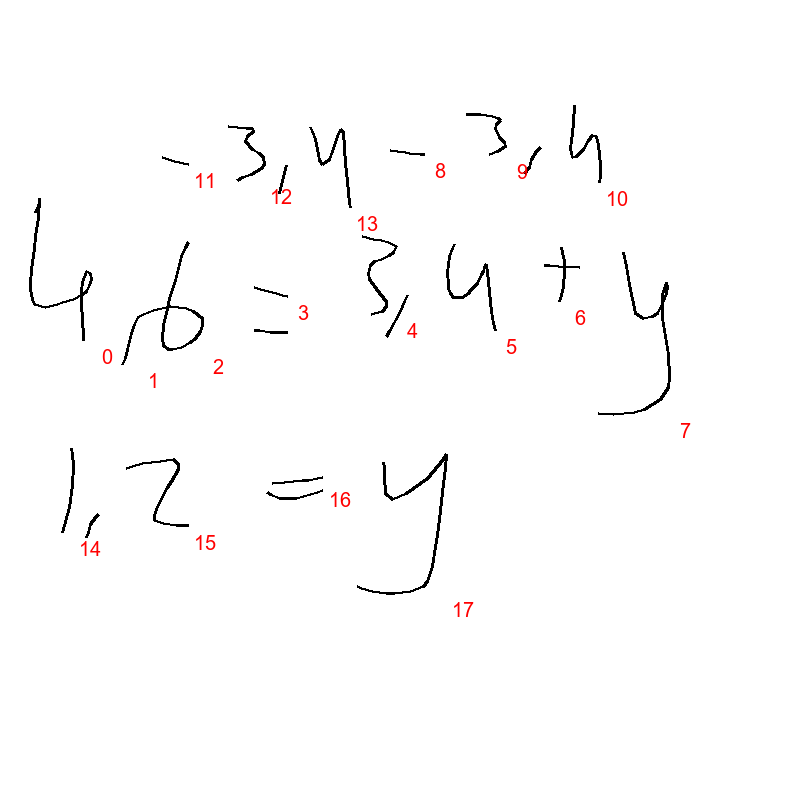 - 3,4 - 3,4
11 12 13 8 9 10
4,6 = 3,4 + y
0 1 2 3 4 5 6 7
1,2 = y
14 15 16 17